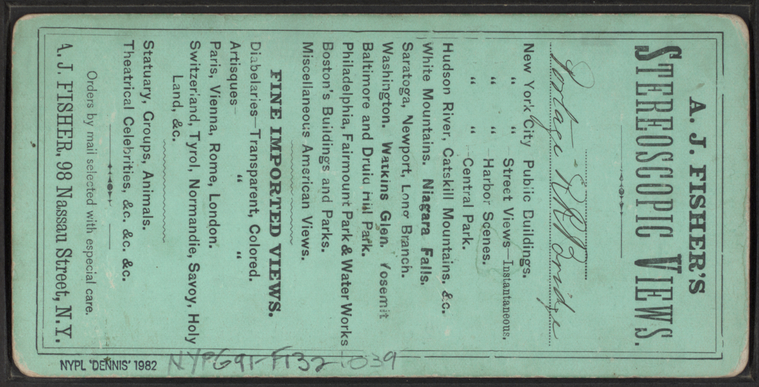 A. J. FISHER'S
STEREOSCOPIC VIEWS.
Portage R R Bridge
New York City Public Buildings.
" " Street Views—Instantaneous.
" " Harbor Scenes.
" " Central Park.
Hudson River, Catskill Mountains, &c.
White Mountains. Niagara Falls.
Saratoga, Newport, Long Branch.
Washington. Watkins Glen. Yosemit
Baltimore and Druid Hill Park.
Philadelphia, Fairmount Park & Water Works
Boston's Buildings and Parks.
Miscellaneous American Views.
FINE IMPORTED VIEWS.
Diabelaries—Transparent, Colored.
Artisques— " "
Paris, Vienna, Rome, London.
Switzerland, Tyrol, Normandie, Savoy, Holy
Land, &c.
Statuary, Groups, Animals.
Theatrical Celebrities, &c. &c. &c.
Orders by mail selected with especial care.
A. J. FISHER, 98 Nassau Street, N.Y.
NYPL 'DENNIS' 1982
NYPG91-F132-1039